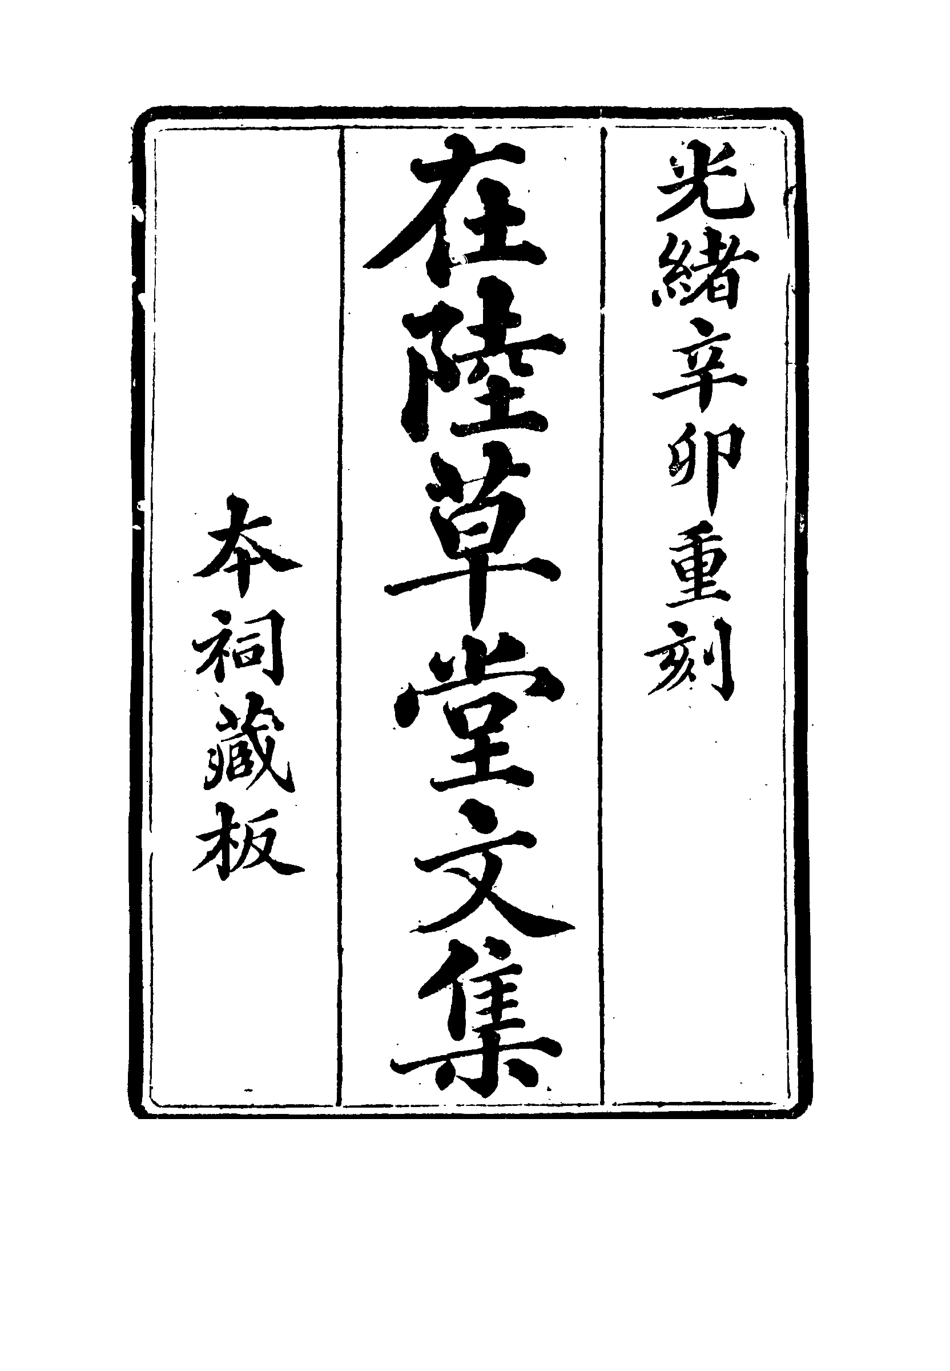 光緒辛卯重刻
在陸草堂文集
本祠藏板